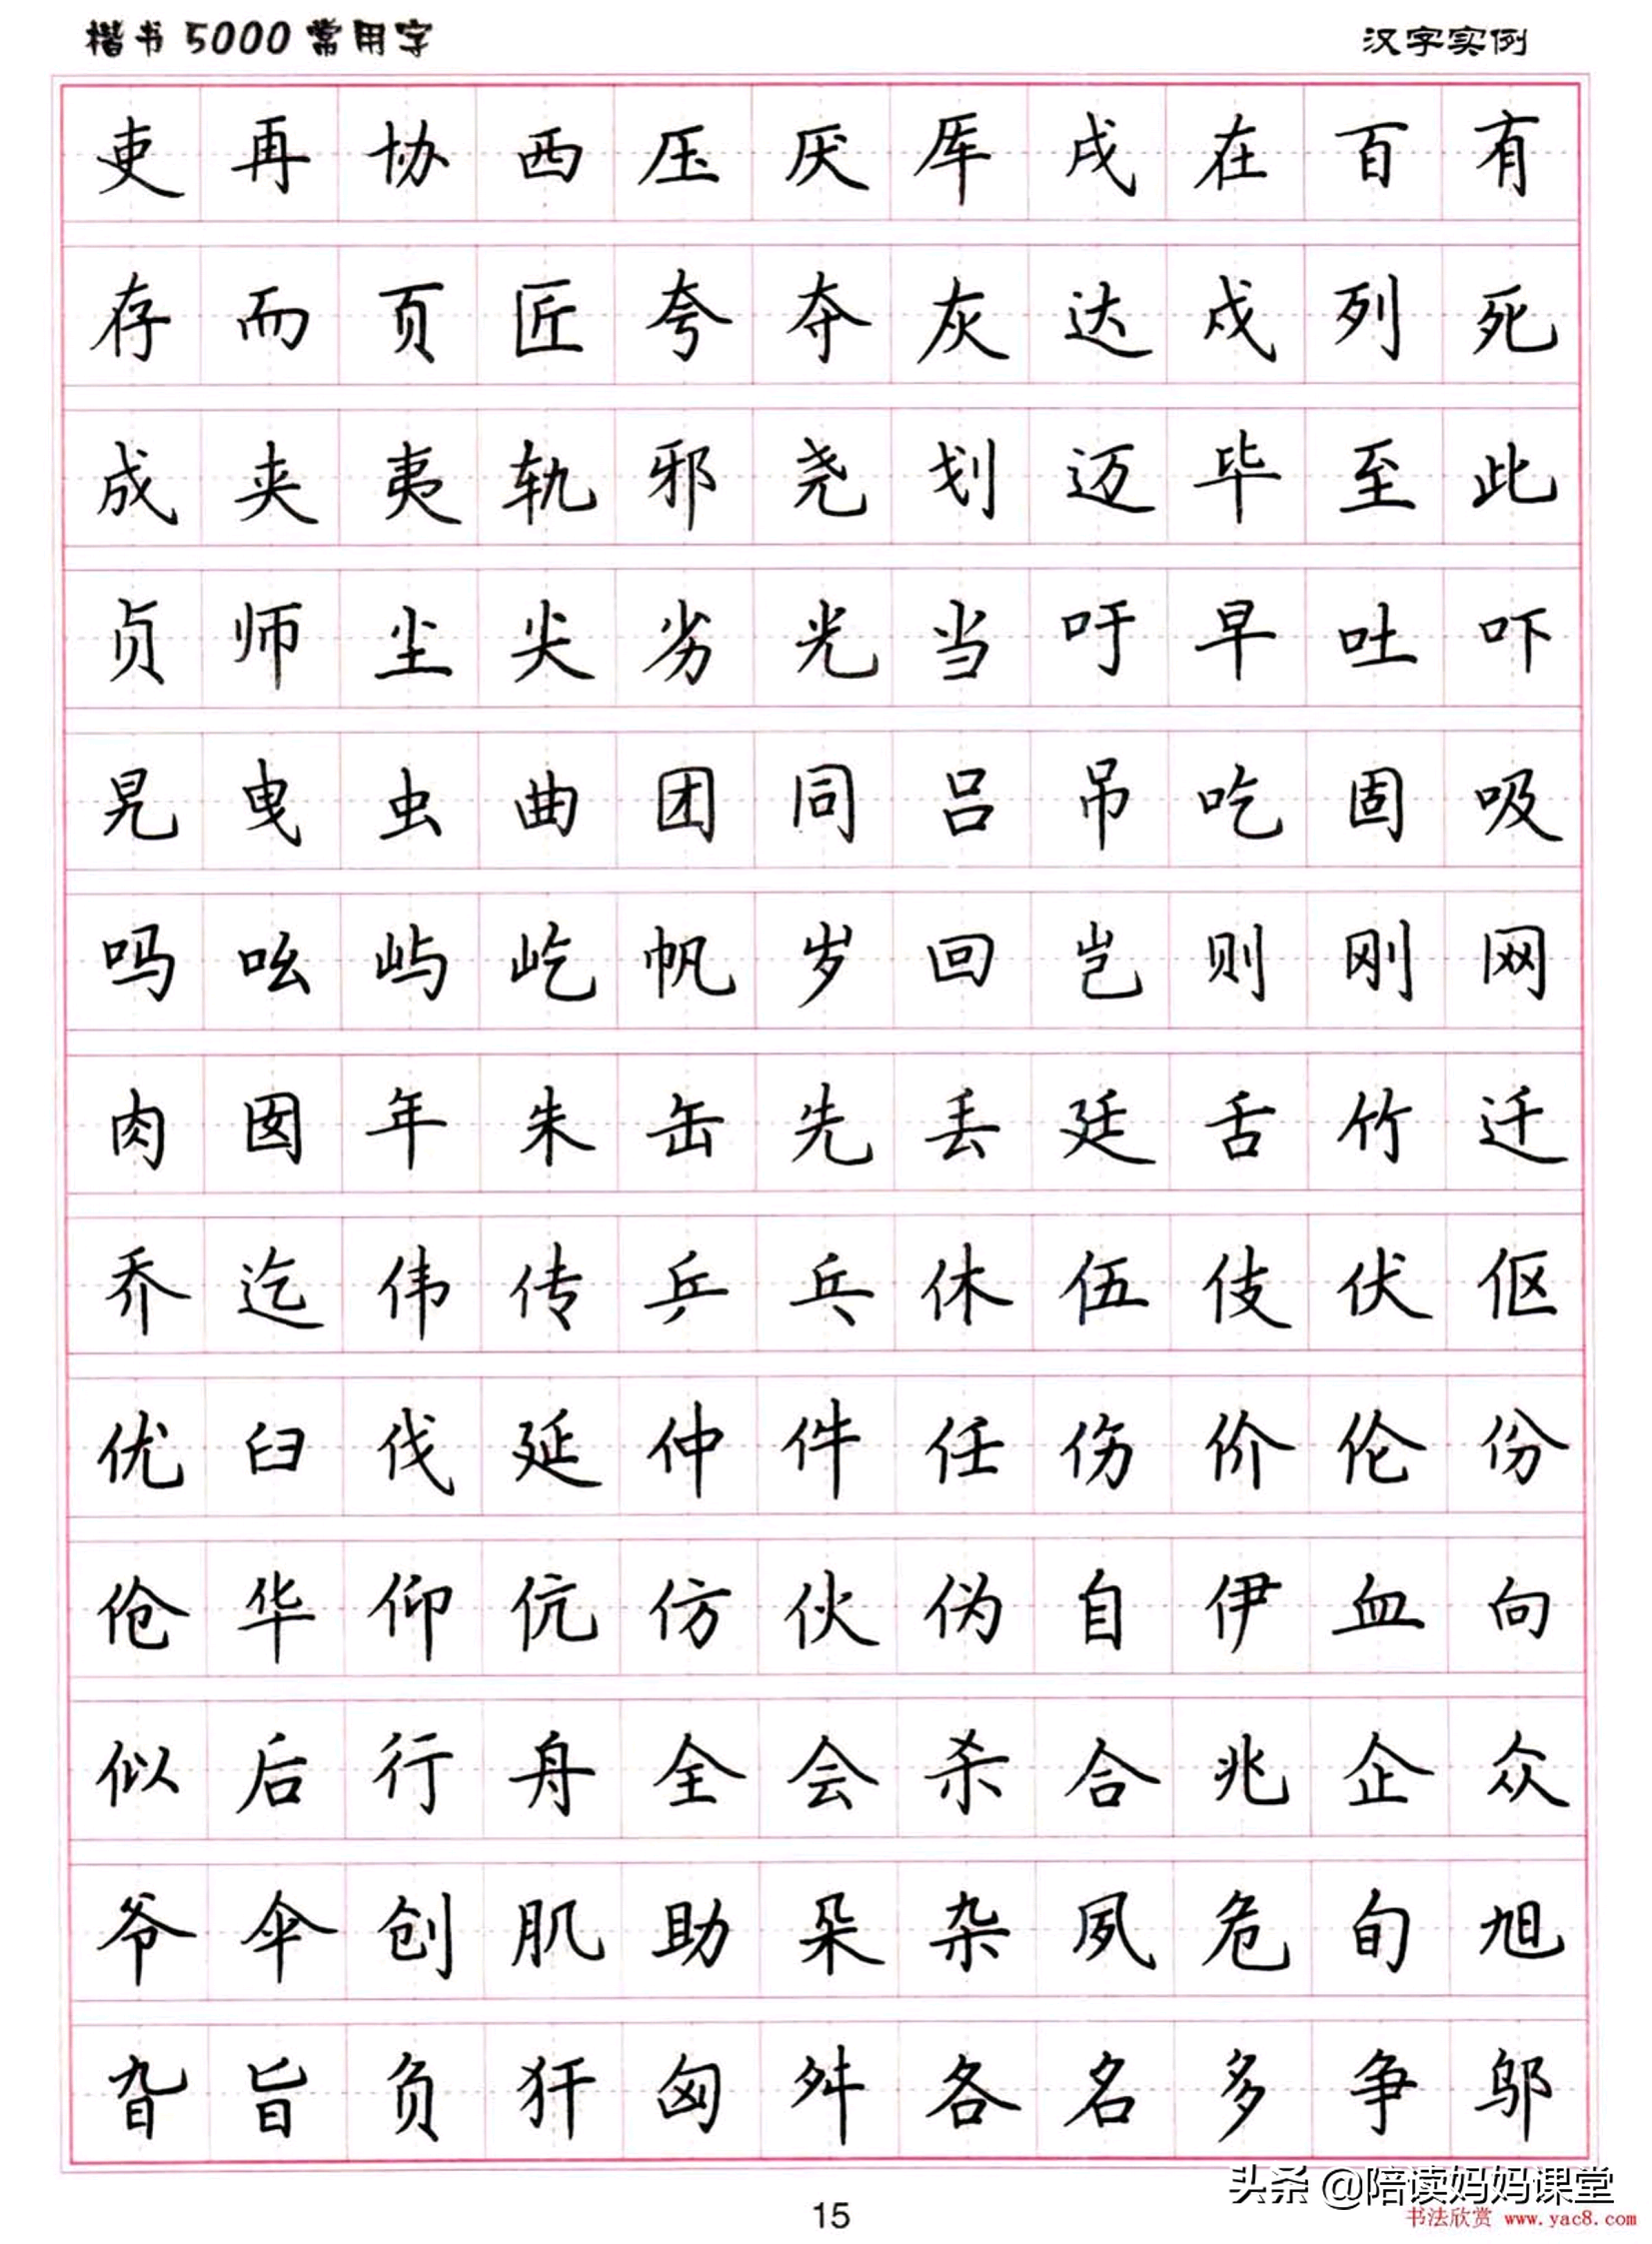 楷书5000常用字 汉字实例
吏再协西压厌厍戌在百有
存而页匠夸夺灰达戍列死
成夹夷轨邪尧划迈毕至此
贞师尘尖劣光当吁早吐吓
旯曳虫曲团同吕吊吃固吸
吗吆屿屹帆岁回岂则刚网
肉囡年朱缶先丢廷舌竹迁
乔迄伟传乒乓休伍伎伏伛
优臼伐延仲件任伤价伦份
伧华仰伉仿伙伪自伊血向
似后行舟全会杀合兆企众
爷伞创肌助朵杂夙危旬旭
旮旨负犴匈舛各名多争邬
头条 @陪读妈妈课堂
15
书法欣赏 www.yac8.com